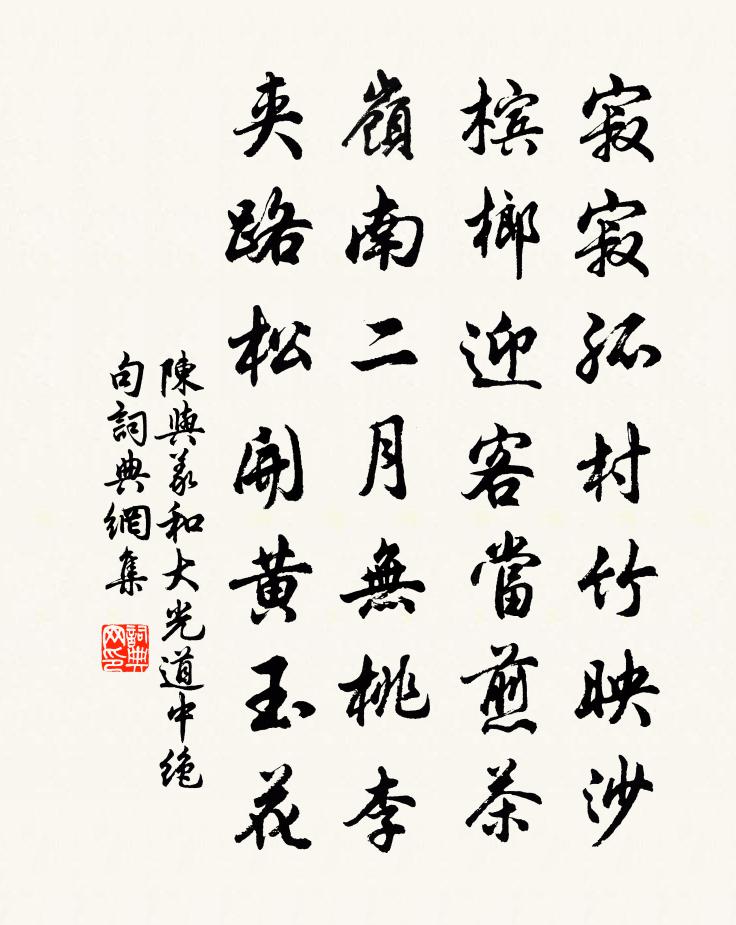 寂寂孤村竹映沙
檳榔迎客當煎茶
嶺南二月無桃李
夾路松開黃玉花
陳與義和大光道中絕
句詞典網集
詞典網印